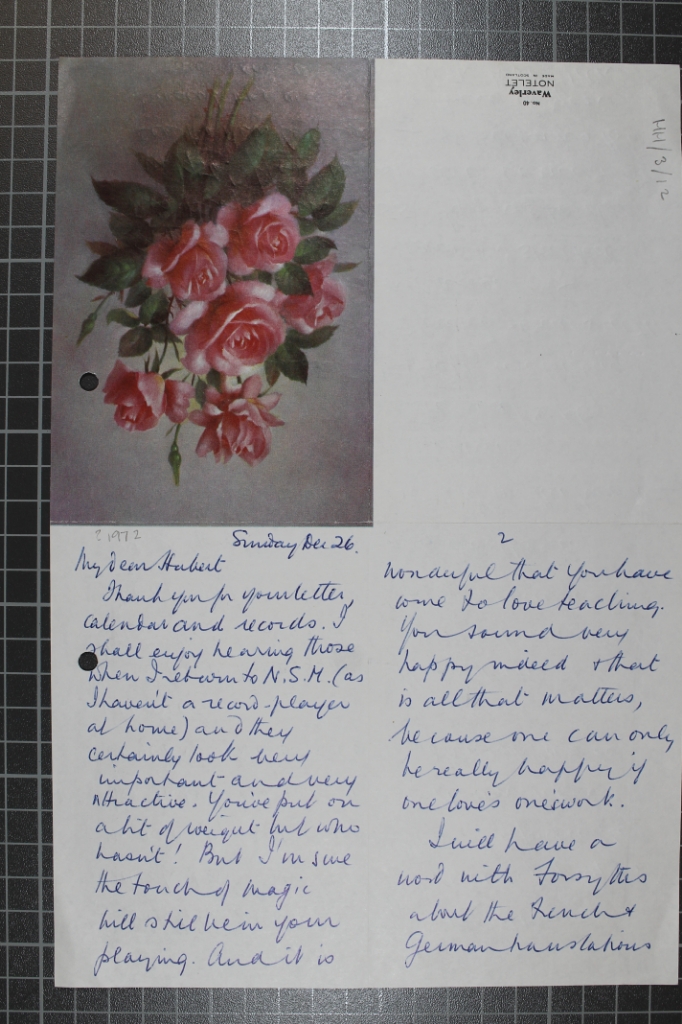 No. 40
Waverley
NOTELET
MADE IN SCOTLAND
HH/3/12
? 1972
Sunday Dec 26.
My dear Hubert
Thank you for your letter,
calendar and records. I
shall enjoy hearing those
when I return to N.S.M. (as
I haven't a record-player
at home) and they
certainly look very
important and very
attractive. You've put on
a bit of weight but who
hasn't! But I'm sure
the touch of magic
will still be in your
playing. And it is
2
wonderful that you have
come to love teaching.
You sound very
happy indeed & that
is all that matters,
because one can only
be really happy if
one loves one's work.
I will have a
word with Forsyths
about the French &
German translations